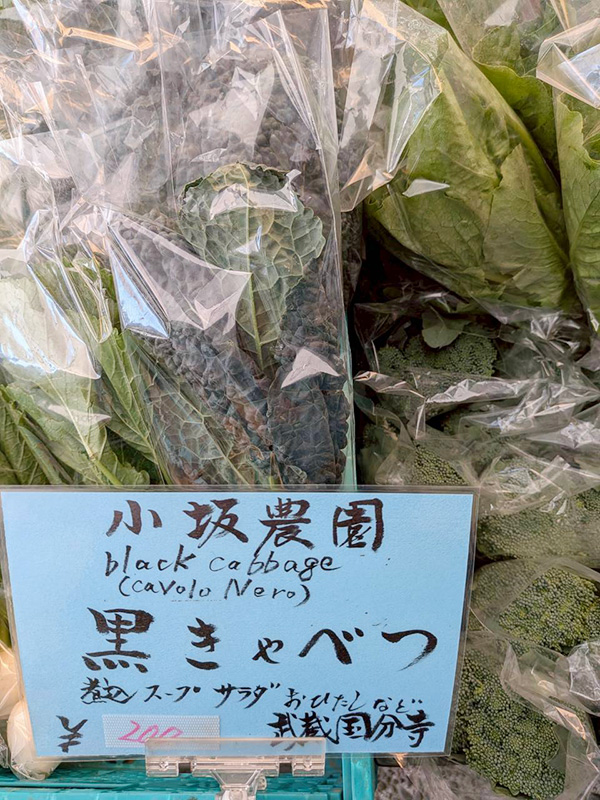 小坂農園
black cabbage
(cavolo Nero)
黒きゃべつ
スープ サラダ おひたしなど
¥ 200 武蔵国分寺